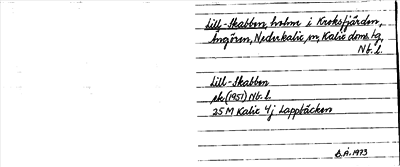 Lill-Skabben, holme i Kroksfjärden,
Ängören, Nederkalix sn, Kalix doms. tg,
Nb. l.
Lill-Skabben
ek (1951) Nb. l.
25 M Kalix 4j Lappbäcken
S.Å. 1973